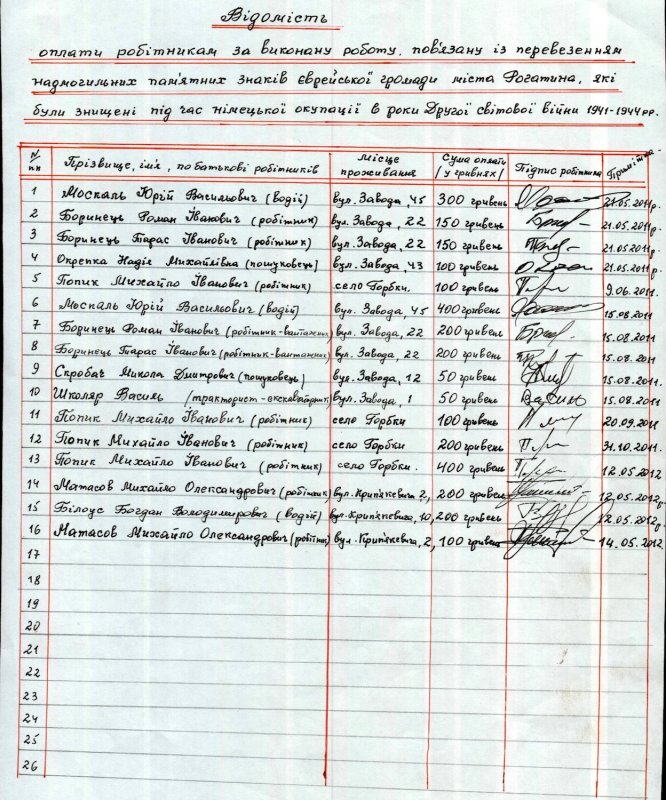 Відомість
оплати робітникам за виконану роботу, пов'язану із перевезенням
надмогильних пам'ятних знаків єврейської громади міста Рогатина, які
були знищені під час німецької окупації в роки Другої світової війни 1941-1944 рр.
N/пп Прізвище, ім'я, по батькові робітників Місце проживання Сума оплати /у гривнях/ Підпис робітника Примітка
1 Москаль Юрій Васильович (водій) вул. Завода, 45 300 гривень 21.05.2011р.
2 Боринець Роман Іванович (робітник) вул. Завода, 22 150 гривень 21.05.2011р.
3 Боринець Тарас Іванович (робітник) вул. Завода, 22 150 гривень 21.05.2011р
4 Окрепка Надія Михайлівна (пошуковець) вул. Завода, 43 100 гривень 21.05.2011р
5 Попик Михайло Іванович (робітник) село Горбки. 100 гривень 9.06.2011.
6 Москаль Юрій Васильович (водій) вул. Завода, 45 400 гривень 15.08.2011
7 Боринець Роман Іванович (робітник-вантажник) вул. Завода, 22 200 гривень 15.08.2011
8 Боринець Тарас Іванович (робітник-вантажник) вул. Завода, 22 200 гривень 15.08.2011
9 Скробач Микола Дмитрович (пошуковець) вул. Завода, 12 50 гривень 15.08.2011.
10 Школяр Василь /тракторист-екскаваторник) вул. Завода, 1 50 гривень 15.08.2011
11 Попик Михайло Іванович (робітник) село Горбки 100 гривень 20.09.2011
12 Попик Михайло Іванович (робітник) село Горбки 200 гривень 31.10.2011.
13 Попик Михайло Іванович (робітник) село Горбки. 400 гривень 12.05.2012
14 Матасов Михайло Олександрович (робітник) вул. Крип'якевича 2, 200 гривень 12.05.2012р.
15 Білоус Богдан Володимирович (водій) вул. Крип'якевича, 10, 200 гривень 12.05.2012р
16 Матасов Михайло Олександрович (робітник) вул. Крип'якевича, 2, 100 гривень 14.05.2012
17
18
19
20
21
22
23
24
25
26